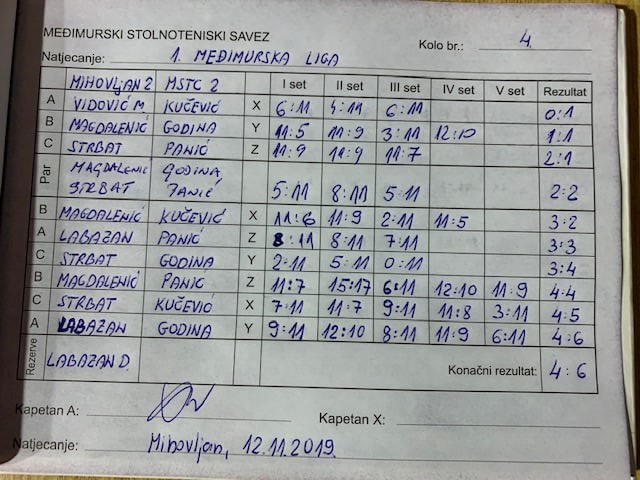 MEĐIMURSKI STOLNOTENISKI SAVEZ
Kolo br.: 4.
Natjecanje: 1. MEĐIMURSKA LIGA
MIHOVLJAN 2 MSTC 2 I set II set III set IV set V set Rezultat
A VIDOVIĆ M KUČEVIĆ X 6:11 4:11 6:11 0:1
B MAGDALENIĆ GODINA Y 11:5 11:9 3:11 12:10 1:1
C STRBAT PANIĆ Z 11:9 11:9 11:7 2:1
Par MAGDALENIĆ GODINA,
STRBAT PANIĆ 5:11 8:11 5:11 2:2
B MAGDALENIĆ KUČEVIĆ X 11:6 11:9 2:11 11:5 3:2
A LABAZAN PANIĆ Z 8:11 8:11 7:11 3:3
C STRBAT GODINA Y 2:11 5:11 0:11 3:4
B MAGDALENIĆ PANIĆ Z 11:7 15:17 6:11 12:10 11:9 4:4
C STRBAT KUČEVIĆ X 7:11 11:7 9:11 11:8 3:11 4:5
A LABAZAN GODINA Y 9:11 12:10 8:11 11:9 6:11 4:6
Rezerve LABAZAN D. Konačni rezultat: 4:6
Kapetan A:
Kapetan X:
Natjecanje: Mihovljan, 12.11.2019.